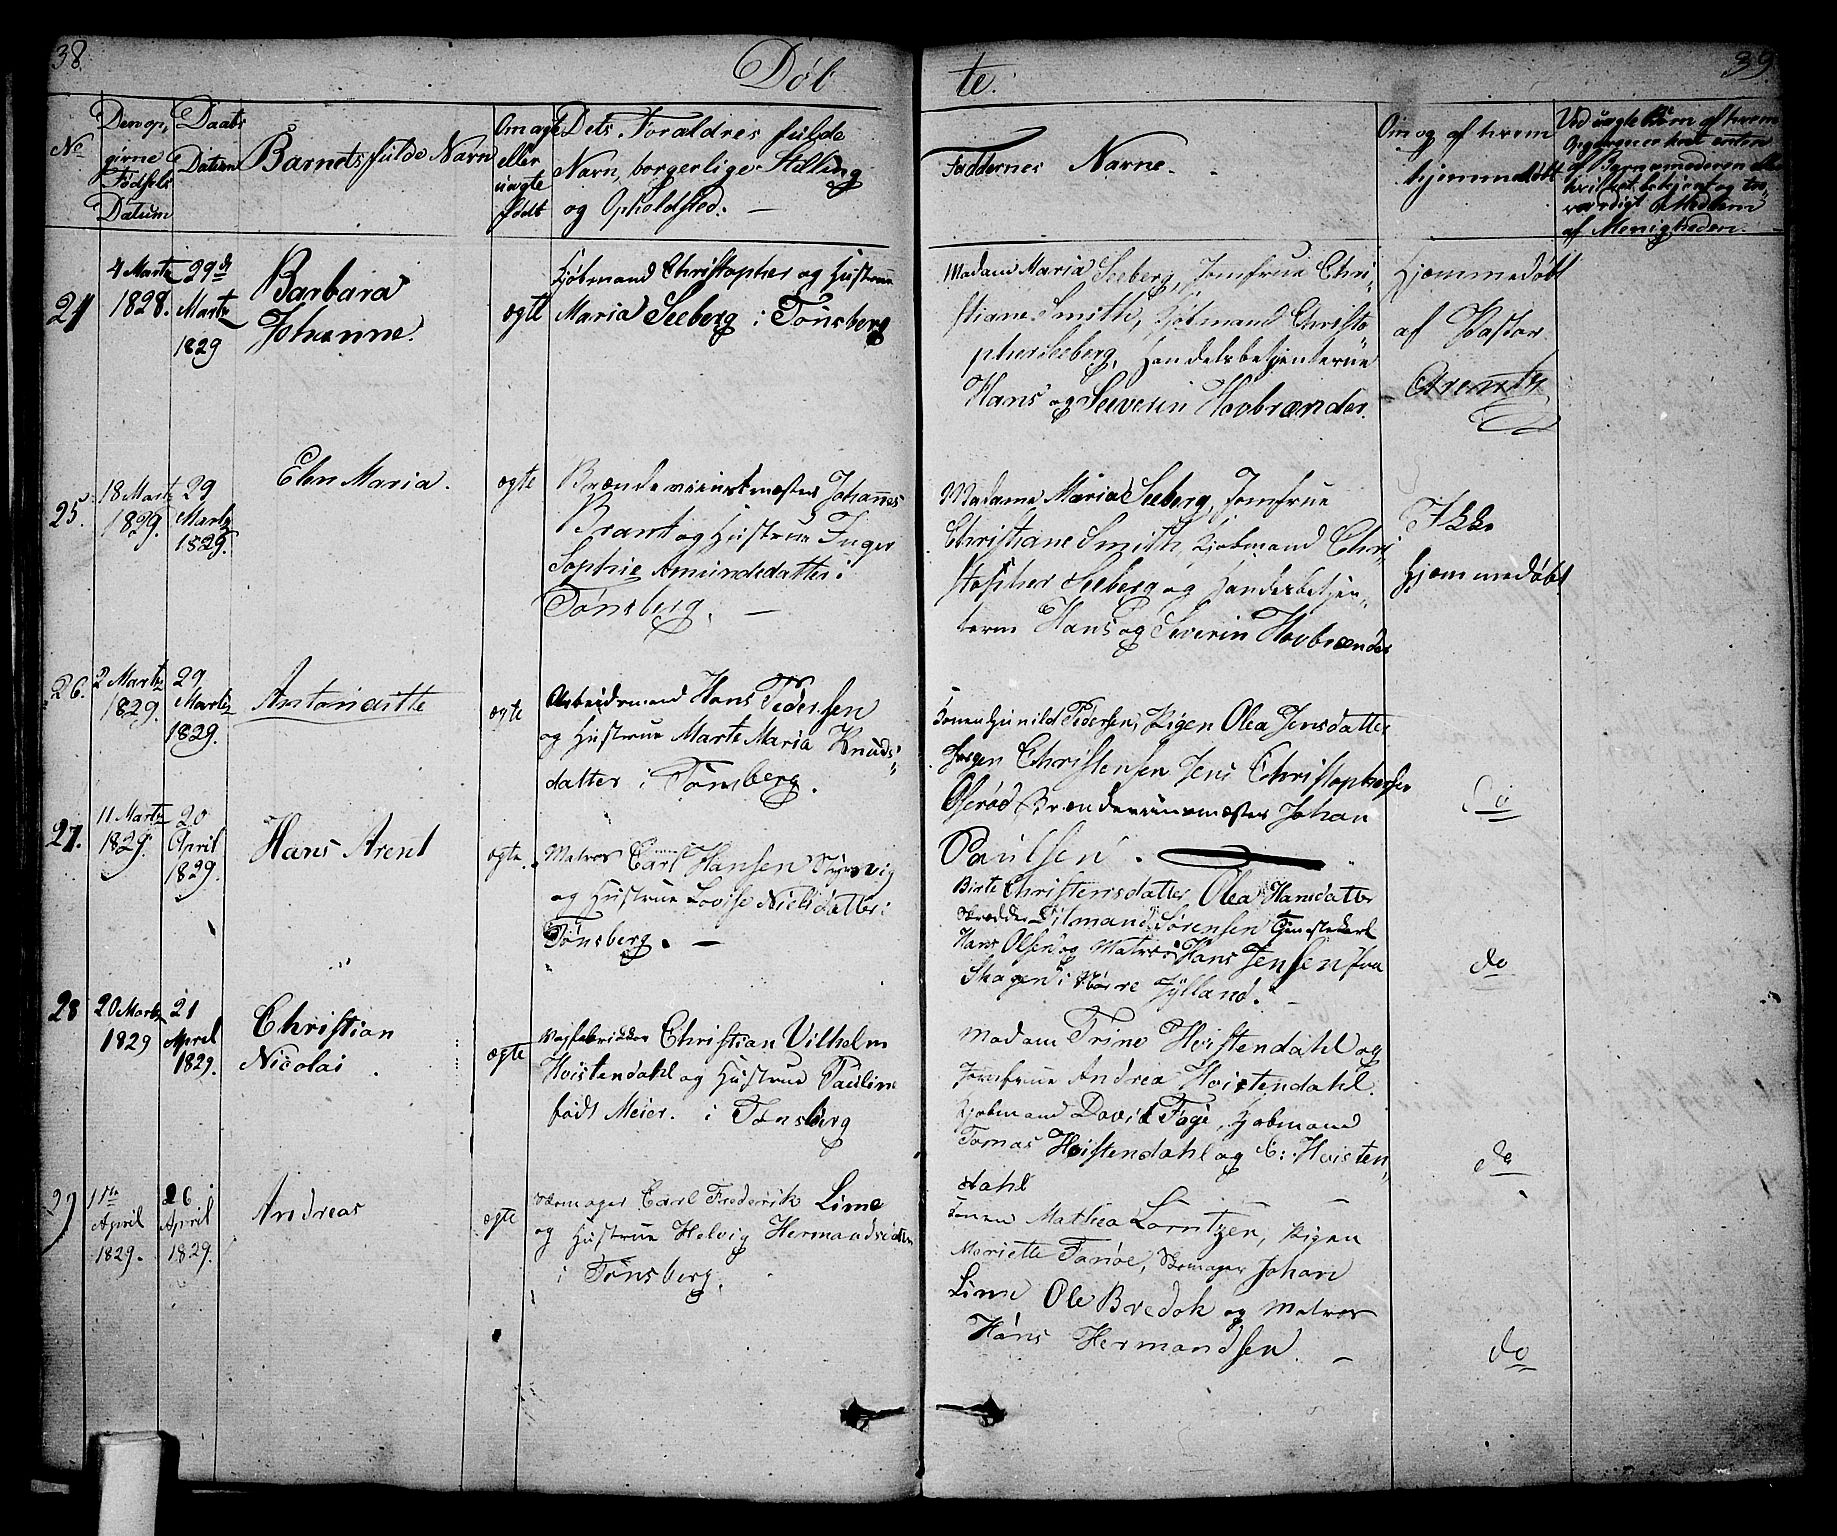 38.
Døb
te.
39.
No
Den op,
girne
Fødsels
Datum
Daabs
Datum
Barnets fulde Navn
Om ægte
eller
uægte
født
Dets Forældres fulde
Navn, borgerlige Stilling
og Opholdsted. —
Faddernes Navne.
Om og af hvem
hjemmedøbt
Ved uægte Børn af hvem
af Menigheden.
24
4 Martz
1828.
29de
Martz
1829
Barbara
Johanne.
ægte
Kjøbmand Christopher og Hustrue
Maria Seeberg i Tønsberg
Madam Maria Seeberg, Jomfrue Chri-
stiane Smith, Kjøbmand Christo
pher Seeberg, Handelsbetjenterne
Hans og Severin Hovbrænder.
Hjemmedøbt
af Pastor
Arentz
25.
18 Martz
1829.
29
Martz
1829.
Elen Maria.
ægte
Brændeviinsmester Johannes
Brant og Hustrue Inger
Sophie Amundsdatter i
Tønsberg. —
Madame Maria Seeberg, Jomfrue
Christiane Smith, Kjøbmand Chri-
stopher Seeberg og Handelsbetjen-
terne Hans og Severin Hovbrænder
Ikke
hjemmedøbt
26.
2 Martz
1829.
29
Martz
1829.
Antoinette
ægte
Arbeidsmand Hans Pedersen
og Hustrue Marte Maria Knuds-
datter i Tønsberg.
Konen Gunild Pedersen, Pigen Olea Jensdatter
Jørgen Christensen Jens Christophersen
Oserød Brændeviinsmester Johan
Paulsen.
do
27.
11 Martz
1829.
20
April
1829.
Hans Arent
ægte.
Matros Carl Hansen
og Hustrue Lovise Nielsdatter i
Tønsberg. —
Birte Christensdatter, Olea Hansdatter
Skrædder Tilmand Sørensen Tjenestekarl
Hans Olsen og Matros Hans Jensen fra
Skagen i Nørre Jylland. —
do
28
20 Martz
1829
21
April
1829.
Christian
Nicolai.
ægte
Christian Vilhelm
Hvistendahl og Hustrue Pauline
født Meier. i Tønsberg
Madam Trine Hvistendahl og
Jomfrue Andrea Hvistendahl.
Kjøbmand David Foÿe, Kjøbmand
Tomas Hvistendahl og C: Hvisten-
dahl — —
do
29
11te
April
1829.
26
April
1829.
Andreas
ægte
Skomager Carl Frederik Lime
og Hustrue Helvig Hermandsdatter
i Tønsberg.
Konen Mathea Lorntzen, Pigen
Mariette Fanøe, Skomager Johan
Lime Ole Bredok og Matros
Hans Hermandsen. —
do